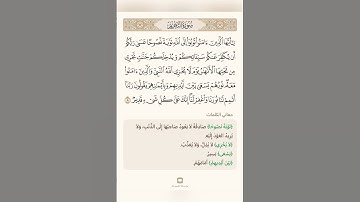 سُورَةُ التَّحْرِيمِ
يَٰٓأَيُّهَا ٱلَّذِينَ ءَامَنُوا۟ تُوبُوٓا۟ إِلَى ٱللَّهِ تَوْبَةً نَّصُوحًا عَسَىٰ رَبُّكُمْ
أَن يُكَفِّرَ عَنكُمْ سَيِّـَٔاتِكُمْ وَيُدْخِلَكُمْ جَنَّٰتٍ تَجْرِى
مِن تَحْتِهَا ٱلْأَنْهَٰرُ يَوْمَ لَا يُخْزِى ٱللَّهُ ٱلنَّبِىَّ وَٱلَّذِينَ ءَامَنُوا۟
مَعَهُۥ نُورُهُمْ يَسْعَىٰ بَيْنَ أَيْدِيهِمْ وَبِأَيْمَٰنِهِمْ يَقُولُونَ رَبَّنَآ
أَتْمِمْ لَنَا نُورَنَا وَٱغْفِرْ لَنَآ إِنَّكَ عَلَىٰ كُلِّ شَىْءٍ قَدِيرٌ ٨
معاني الكلمات:
(تَوْبَةً نَصُوحًا) صَادِقَةً لَا يَعُودُ صَاحِبُهَا إِلَى الذَّنْبِ، وَلَا
يُرِيدُ العَوْدَ إِلَيْهِ.
(لَا يُخْزِي) لَا يُذِلُّ، وَلَا يُعَذِّبُ.
(يَسْعَى) يَسِيرُ.
(بَيْنَ أَيْدِيهِمْ) أَمَامَهُمْ.